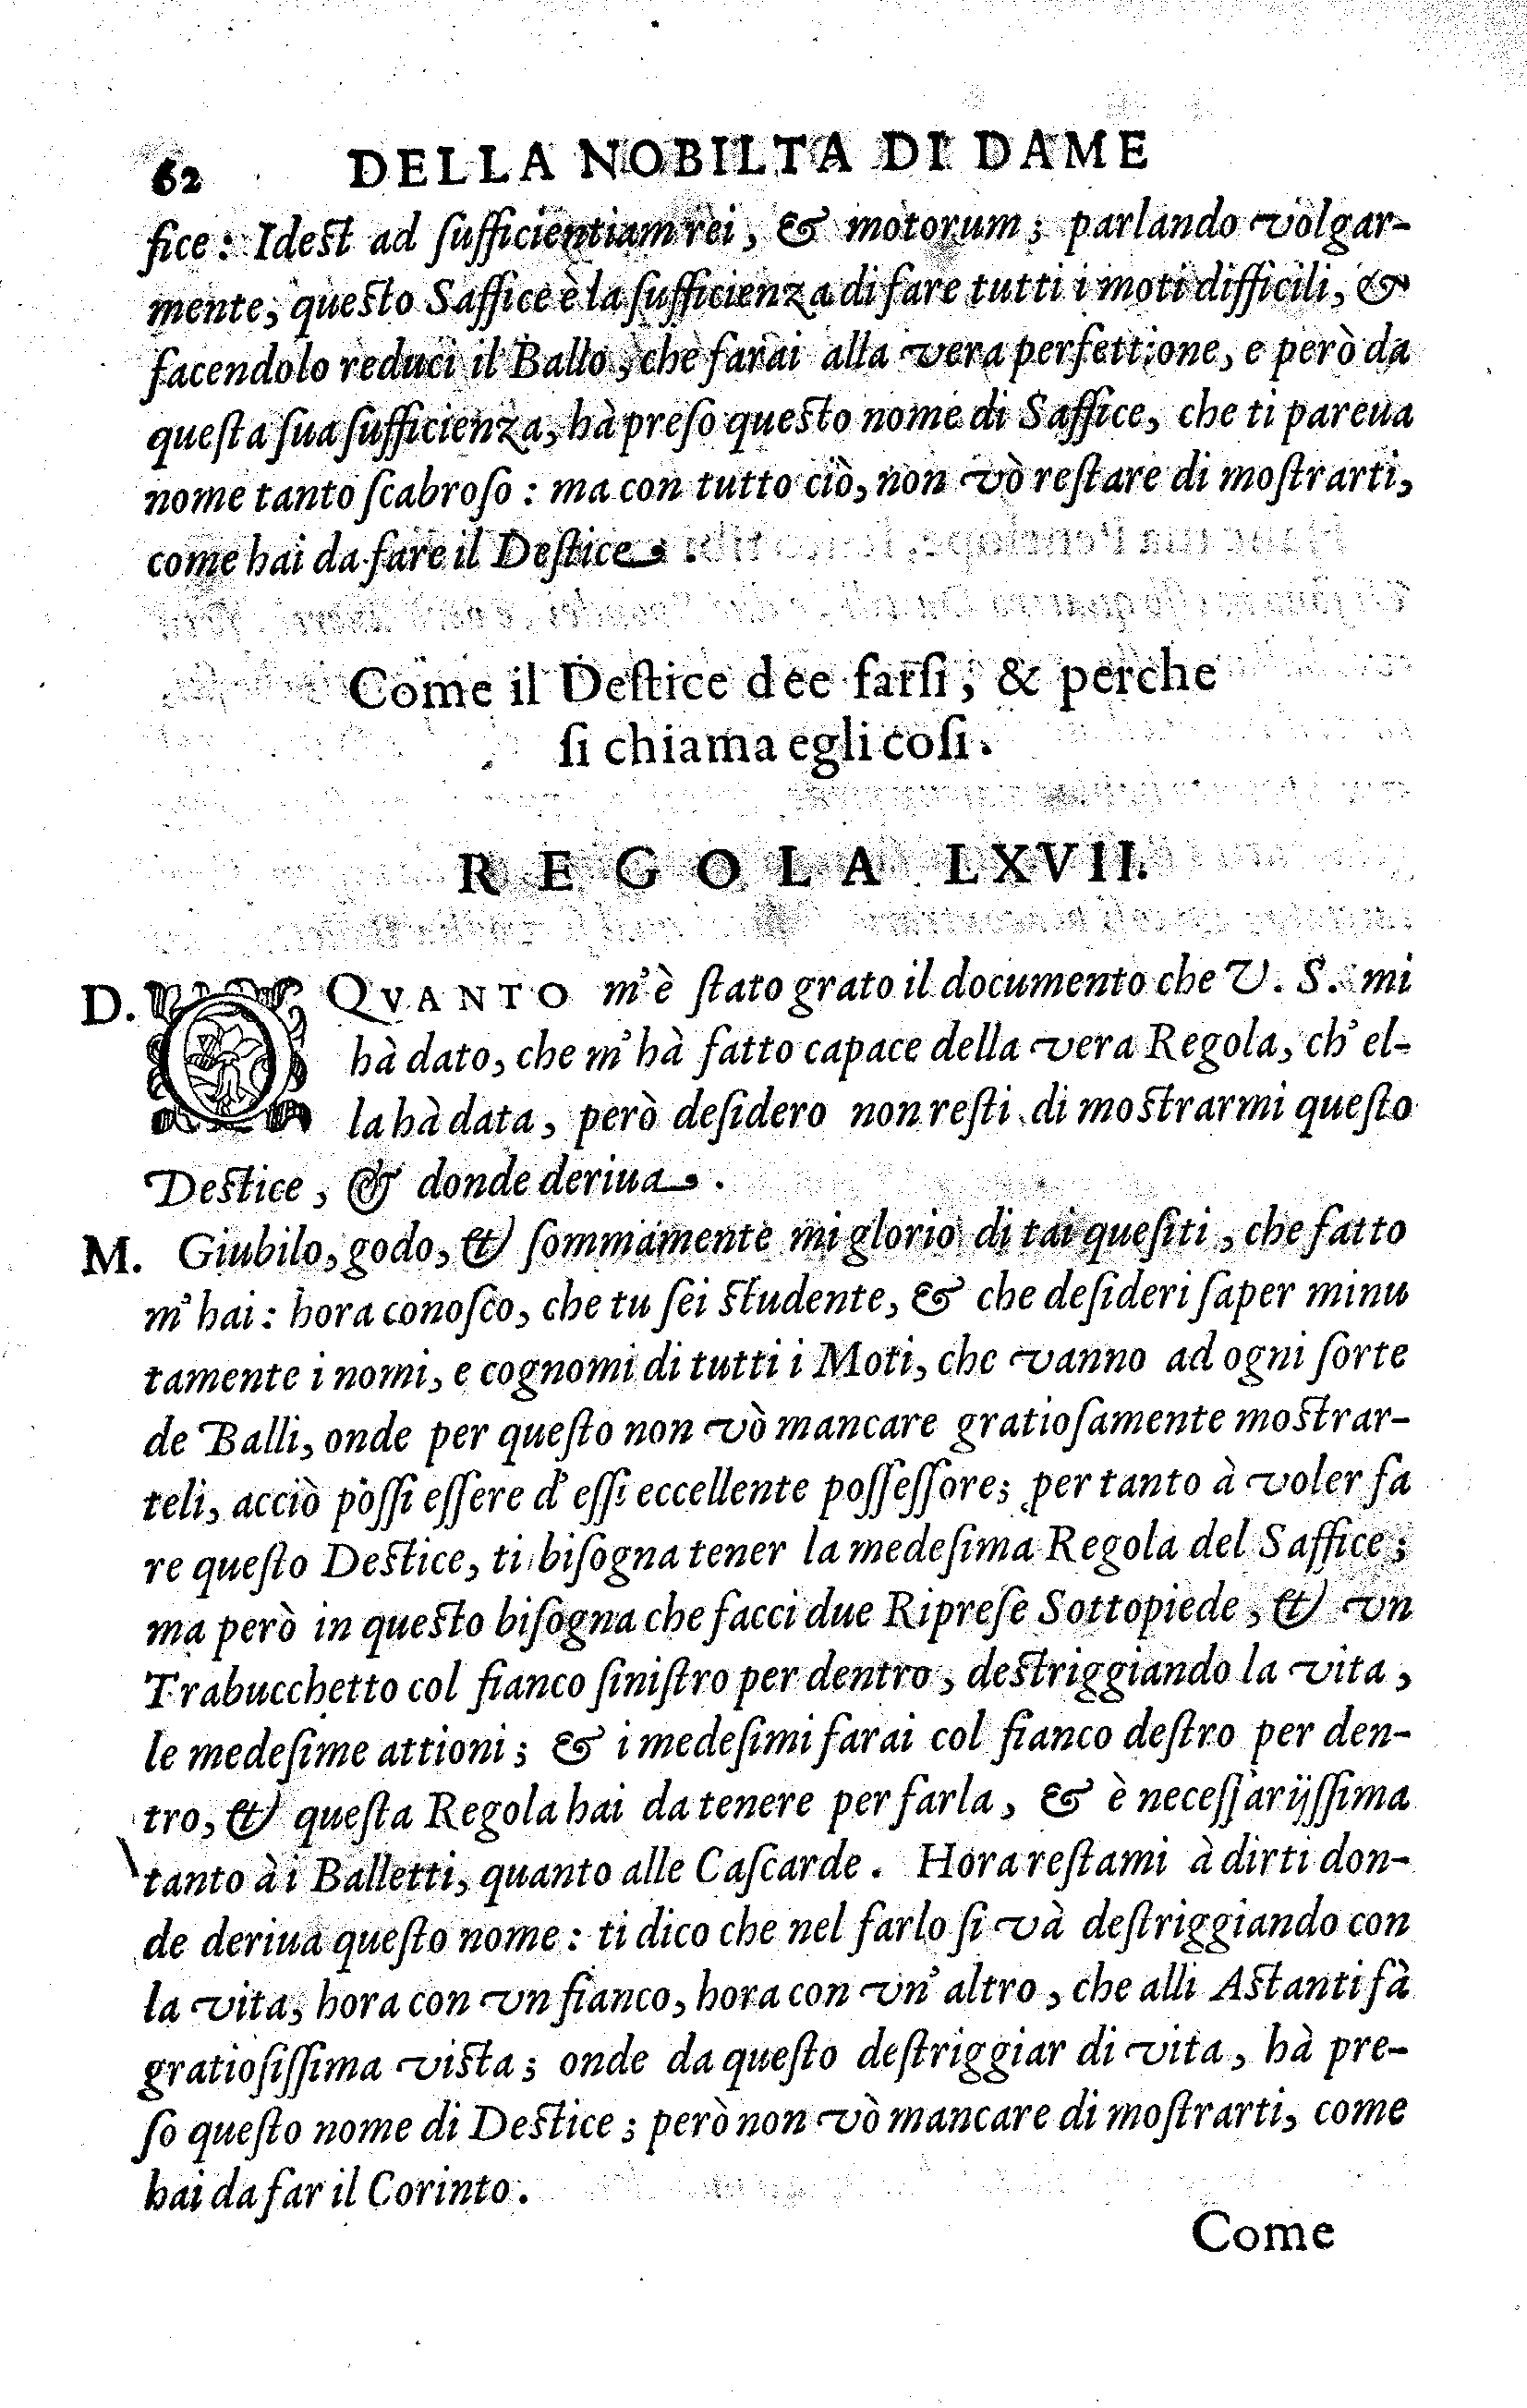 62 DELLA NOBILTA DI DAME
fice: Idest ad ſufficientiam rei, & motorum; parlando volgar-
mente, questo Saffice è la ſufficienza di fare tutti i moti difficili, &
facendolo reduci il Ballo, che farai alla vera perfettione, e però da
queſta ſua ſufficienza, hà preſo questo nome di Saffice, che ti pareua
nome tanto ſcabroſo: ma con tutto ciò, non vò reſtare di moſtrarti,
come hai da fare il Deſtice.
Come il Deſtice dee farſi, & perche
ſi chiama egli coſi.
REGOLA LXVII.
D. O QVANTO m'è ſtato grato il documento che V. S. mi
hà dato, che m'hà fatto capace della vera Regola, ch'el-
la hà data, però deſidero non reſti di mostrarmi queſto
Destice, & donde deriua.
M. Giubilo, godo, & ſommamente mi glorio di tai queſiti, che fatto
m'hai: hora conoſco, che tu ſei studente, & che deſideri ſaper minu
tamente i nomi, e cognomi di tutti i Moti, che vanno ad ogni ſorte
de Balli, onde per queſto non vò mancare gratioſamente mostrar-
teli, acciò poſſi eſſere d'eſſi eccellente poſſeſſore; per tanto à voler fa
re queſto Destice, ti biſogna tener la medeſima Regola del Saffice;
ma però in questo biſogna che facci due Ripreſe Sottopiede, & vn
Trabucchetto col fianco ſiniſtro per dentro, destriggiando la vita,
le medeſime attioni; & i medeſimi farai col fianco deſtro per den-
tro, & queſta Regola hai da tenere per farla, & è neceſſarijſſima
tanto à i Balletti, quanto alle Caſcarde. Hora reſtami à dirti don-
de deriua queſto nome: ti dico che nel farlo ſi và deſtriggiando con
la vita, hora con vn fianco, hora con vn'altro, che alli Astanti fà
gratioſiſſima vista; onde da queſto deſtriggiar di vita, hà pre-
ſo queſto nome di Destice; però non vò mancare di moſtrarti, come
hai da far il Corinto.
Come